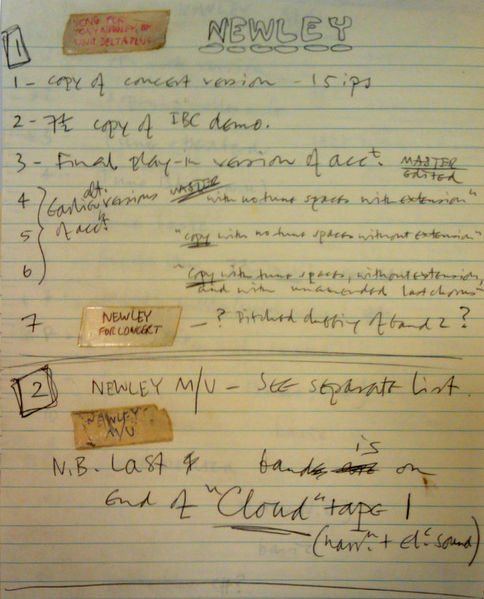 1
SONG FOR
TONY NEWLEY BY
UNIT DELTA PLUS
NEWLEY
1 - copy of concert version - 15 ips
2 - 7½ copy of IBC demo.
3 - Final play-in version of acct. MASTER
Edited
4 Earlier alt. versions MASTER with no tune spaces with extension"
of acct.
5 "copy with no tune spaces without extension"
6 "copy with tune spaces, without extension,
and with unamended last chorus"
7 NEWLEY
FOR CONCERT
- ? Pitched dubbing of band 2 ?
2 NEWLEY M/U - SEE separate list.
NEWLEY
M/U
N.B. Last band is on
End of "Cloud" tape 1
(narrn + el. sound)